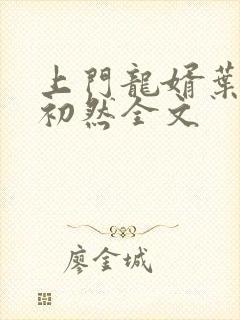 上門龍婿葉
初然全文
廖金城